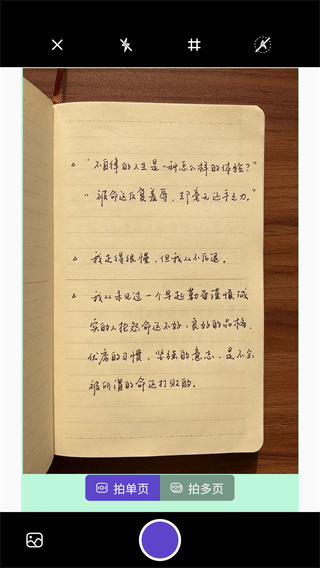 。"不自律的人生是一种怎么样的体验？"
"被命运反复羞辱，却毫无还手之力。"
。我走得很慢，但我从不后退。
。我从未见过一个早起勤奋谨慎诚
实的人抱怨命运不好，良好的品格，
优秀的习惯，坚强的意志，是不会
被所谓的命运打败的。
拍单页
拍多页